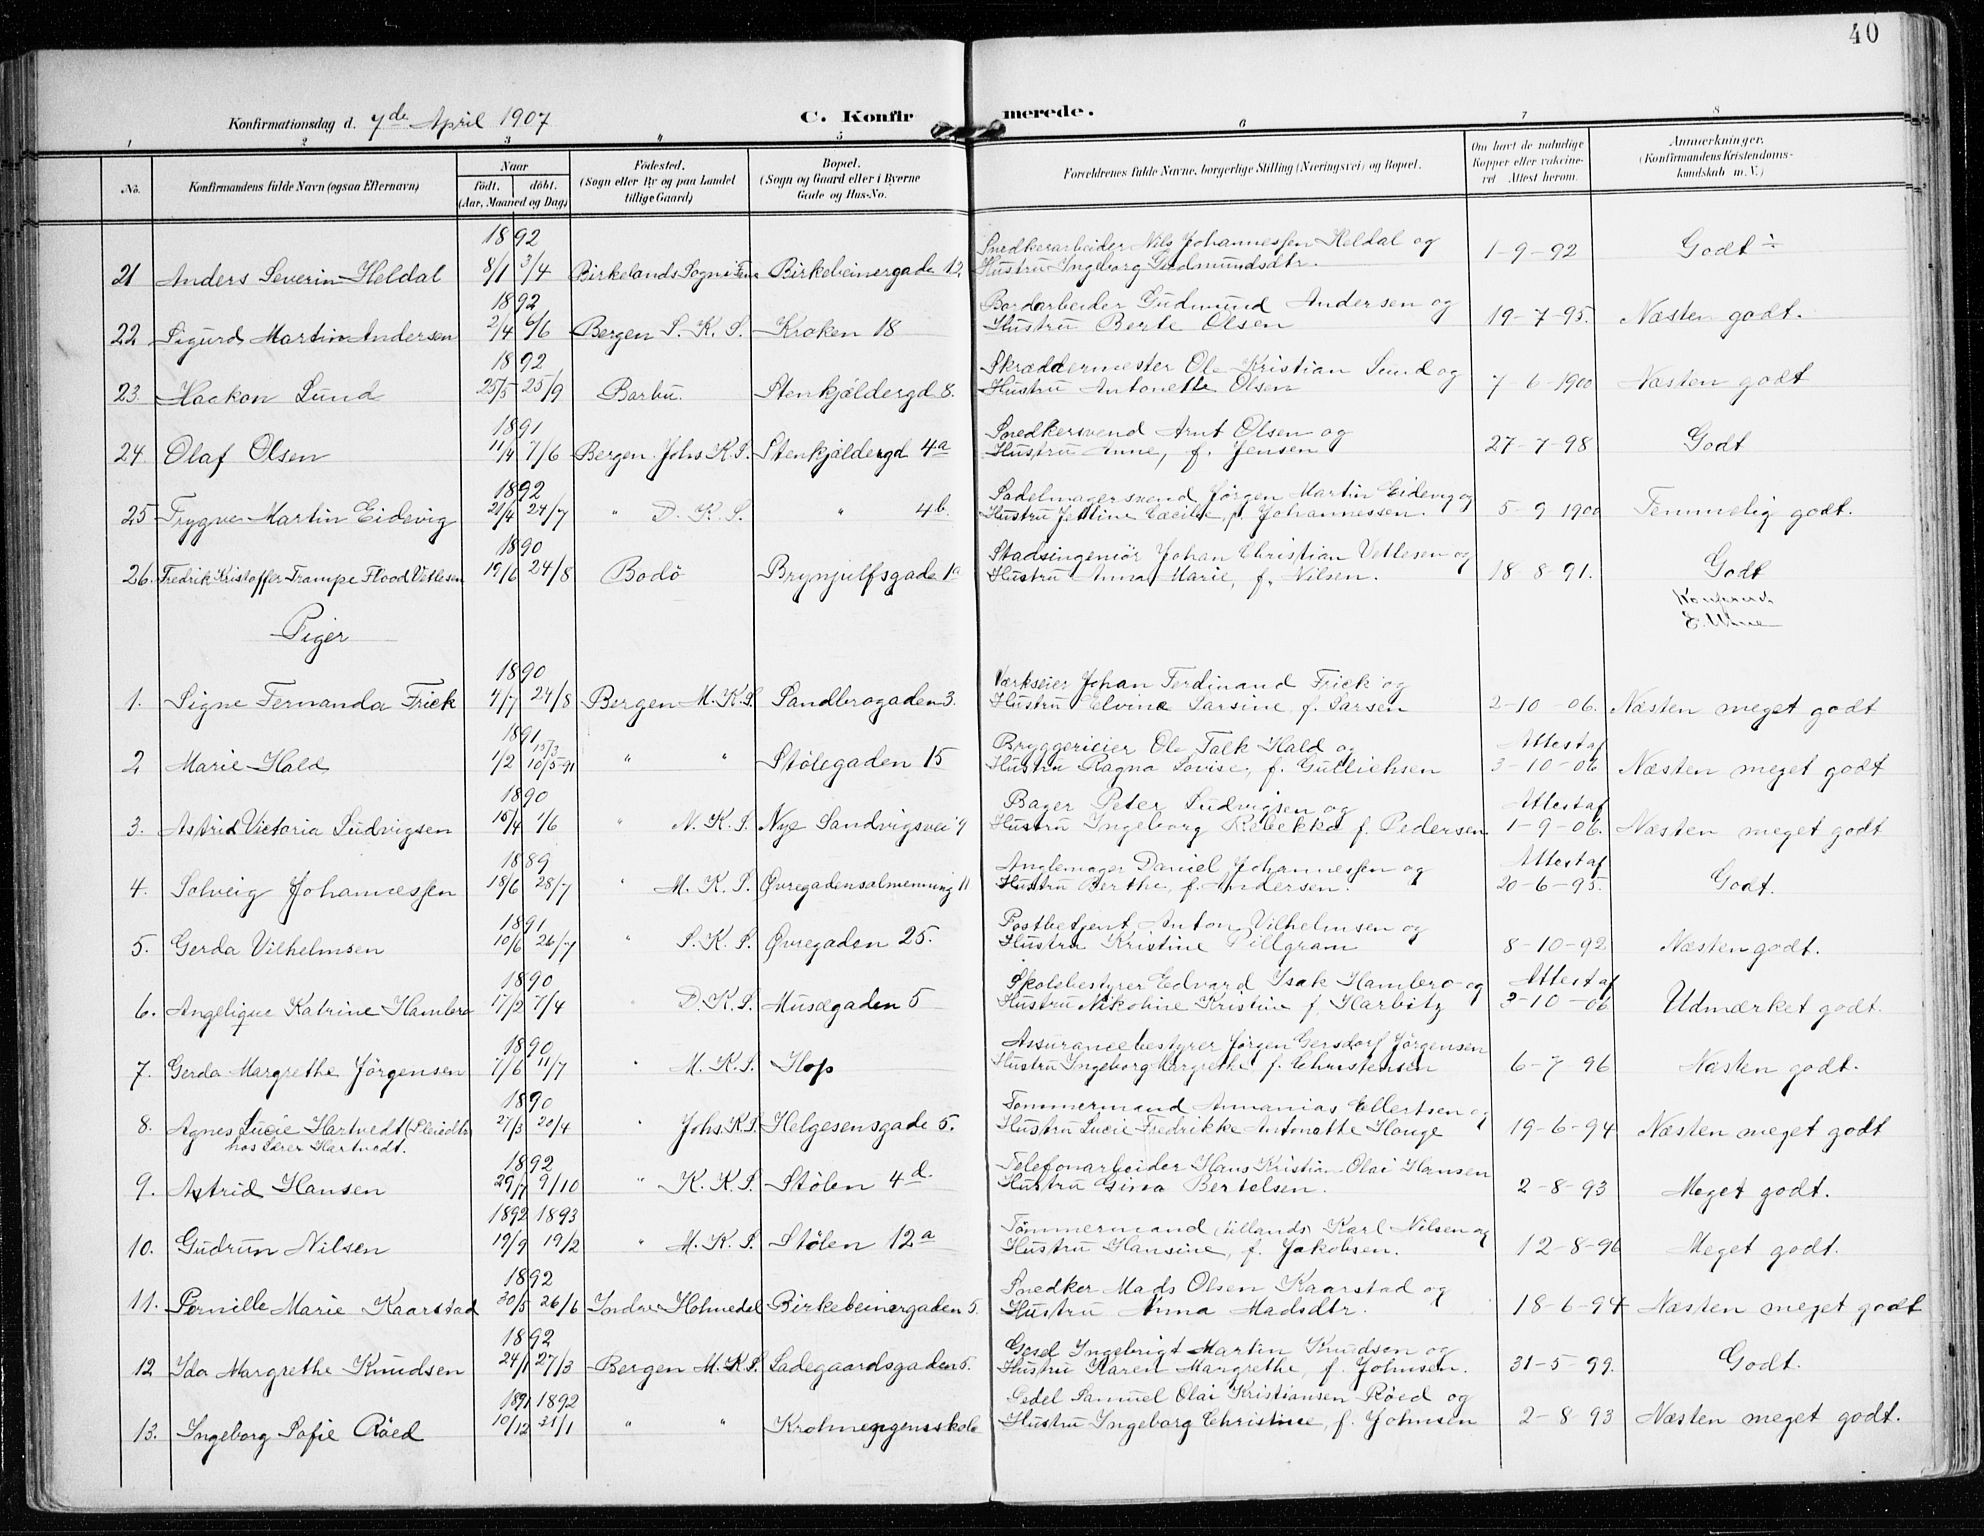 40
Konfirmationsdag d. 7de April 1907 C. Konfirmerede.
1 2 3 4 5 6 7 8
No. Konfirmandens fulde Navn (ogsaa Efternavn) Naar født. døbt. (Aar, Maaned og Dag) Fødested. (Sogn eller By og paa Landet tillige Gaard) Bopæl. (Sogn og Gaard eller i Byerne Gade og Hus-No. Forældrenes fulde Navne, borgerlige Stilling (Næringsvei) og Bopæl. Om havt de naturlige Kopper eller vakcineret Attest herom. Anmerkninger. (Konfirmandens Kristendomskundskab m. V.)
1892 Snedkerarbeider Nils Johannessen Heldal og
21 Anders Severin Heldal 8/1 3/4 Birkelands Sogn Birkebeinergade 12 Hustru Ingeborg Gudmundsdtr. 1-9-92 Godt ÷
1892 Bordarbeider Gudmund Andersen og
22 Sigurd Martin Andersen 2/4 6/6 Bergen S. K. S. Kroken 18 Hustru Berte Olsen 19-7-95. Næsten godt.
1892 Skræddermester Ole Kristian Lund og
23. Haakon Lund 25/5 25/9 Barbu. Stenkjældergd 8. Hustru Antonette Olsen 7 6-1900 Næsten godt
1891 Snedkersvend Arnt Olsen og
24. Olaf Olsen 11/4 7/6 Bergen. Johs K.S. Stenkjældergd 4a Hustru Anne, f. Jensen 27-7-98 Godt
1892 Sadelmagersvend Jørgen Martin Eidevig og
25 Trygve Martin Eidevig 21/4 24/7 " D. K. S. " 4b. Hustru Jettine Cæcilie, f. Johannessen. 5-9 1900 Temmelig godt.
1890 Stadsingeniør Johan Christian Vetlesen og
26. Fredrik Kristoffer Trampe Flood Vetlesen 19/6 24/8 Bodø Brynjulfsgade 1a Hustru Anna Marie, f. Nilsen. 18-8-91. Godt
Piger
1890 Værkseier Johan Ferdinand Frick og
1. Signe Fernanda Frick 4/7 24/8 Bergen M. K. S. Sandbrogaden 3. Hustru Elvine Larsine, f. Larsen 2-10-06. Næsten meget godt
1891 Bryggerieier Ole Falk Hald og Attest af
2 Marie Hald 1/2 10/5-91 " " Stølegaden 15 Hustru Ragna Lovise, f. Gullichsen 3-10-06 Næsten meget godt
1890 Bager Peter Ludvigsen og Attest af
3. Astrid Victoria Ludvigsen 15/4 1/6 " N. K. S. Nye Sandvigsvei 9 Hustru Ingeborg Rebekka f. Pedersen 1-9-06. Næsten meget godt
1889 Anglemager Daniel Johannessen og Attest af
4. Solveig Johannessen 18/6 28/7 " M. K. S. Øvregadensalmenning 11 Hustru Berthe, f. Andersen. 20-6-95. Godt.
1891 Postbetjent Anton Vilhelmsen og
5. Gerda Vilhelmsen 10/6 26/7 " S. K. S. Øvregaden 25. Hustru Kristine Pillgram 8-10-92 Næsten godt.
1890 Skolebestyrer Edvard Isak Hambro og Attest af
6. Angelique Katrine Hambro 17/2 7/4 D. K. S. Musægaden 5 Hustru Nikoline Kristine f. Harbitz 3-10-06 Udmærket godt.
1890 Assurancebestyrer Jørgen Gersdorf Jørgensen
7. Gerda Margrethe Jørgensen 7/6 11/7 " M. K. S. Hop Hustru Ingeborg Margrethe f. Christensen 6-7-96 Næsten godt.
1890 Tømmermand Annanias Ellertsen og
8. Agnes Lucie Hartvedt (Pleiedtr 27/3 20/4 " Johs. K S. Helgesensgade 5. Hustru Lucie Fredrikke Antonette Hauge 19-6-94 Næsten meget godt
hos Hartvedt.
1892 Telefonarbeider Hans Kristian Olai Hansen
9. Astrid Hansen 29/7 9/10 " K. K. S. Stølen 4d. Hustru Gina Bertelsen. 2-8-93 Meget godt.
1892 1893 Tømmermand (utlands) Karl Nilsen og
10. Gudrun Nilsen 19/9 19/2 " M. K. S. Stølen 12a Hustru Hansine, f. Jakobsen. 12-8-96 Meget godt.
1892 Snedker Mads Olsen Kaarstad og
11. Pernille Marie Kaarstad 30/5 26/6 Indre Holmedal Birkebeinergaden 5. Hustru Anna Madsdtr. 18-6-94 Næsten meget godt
1892 Gesel Ingebrigt Martin Knudsen og
12 Ida Margrethe Knudsen 24/1 27/3 Bergen M. K. S. Ladegaardsgaden 5. Hustru Karen Margrethe, f. Johnsen. 31-5-99. Godt.
1891 1892 Samuel Olai Kristiansen Røed og
13. Ingeborg Sofie Røed 10/12 31/1 " " Krohnengensskole Hustru Ingeborg Christine, f. Johnsen 2-8-93 Næsten meget godt.